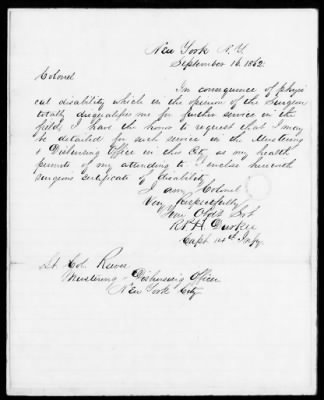 New York N.Y.
September 16. 1862.
Colonel
In consequence of physi
cal disability which in the opinion of the Surgeon
totally disqualifies me for further service in the
field, I have the honor to request that I may
be detailed for such service in the Mustering
& Disbursing Office in this City as my health
permits of my attending to. I enclose herewith
surgeons certificate of disability
I am, Colonel
Very Respectfully
Your Obdt Svt
Durkee
Capt Infy.
Lt. Col.
Mustering & Disbursing Officer
New York City